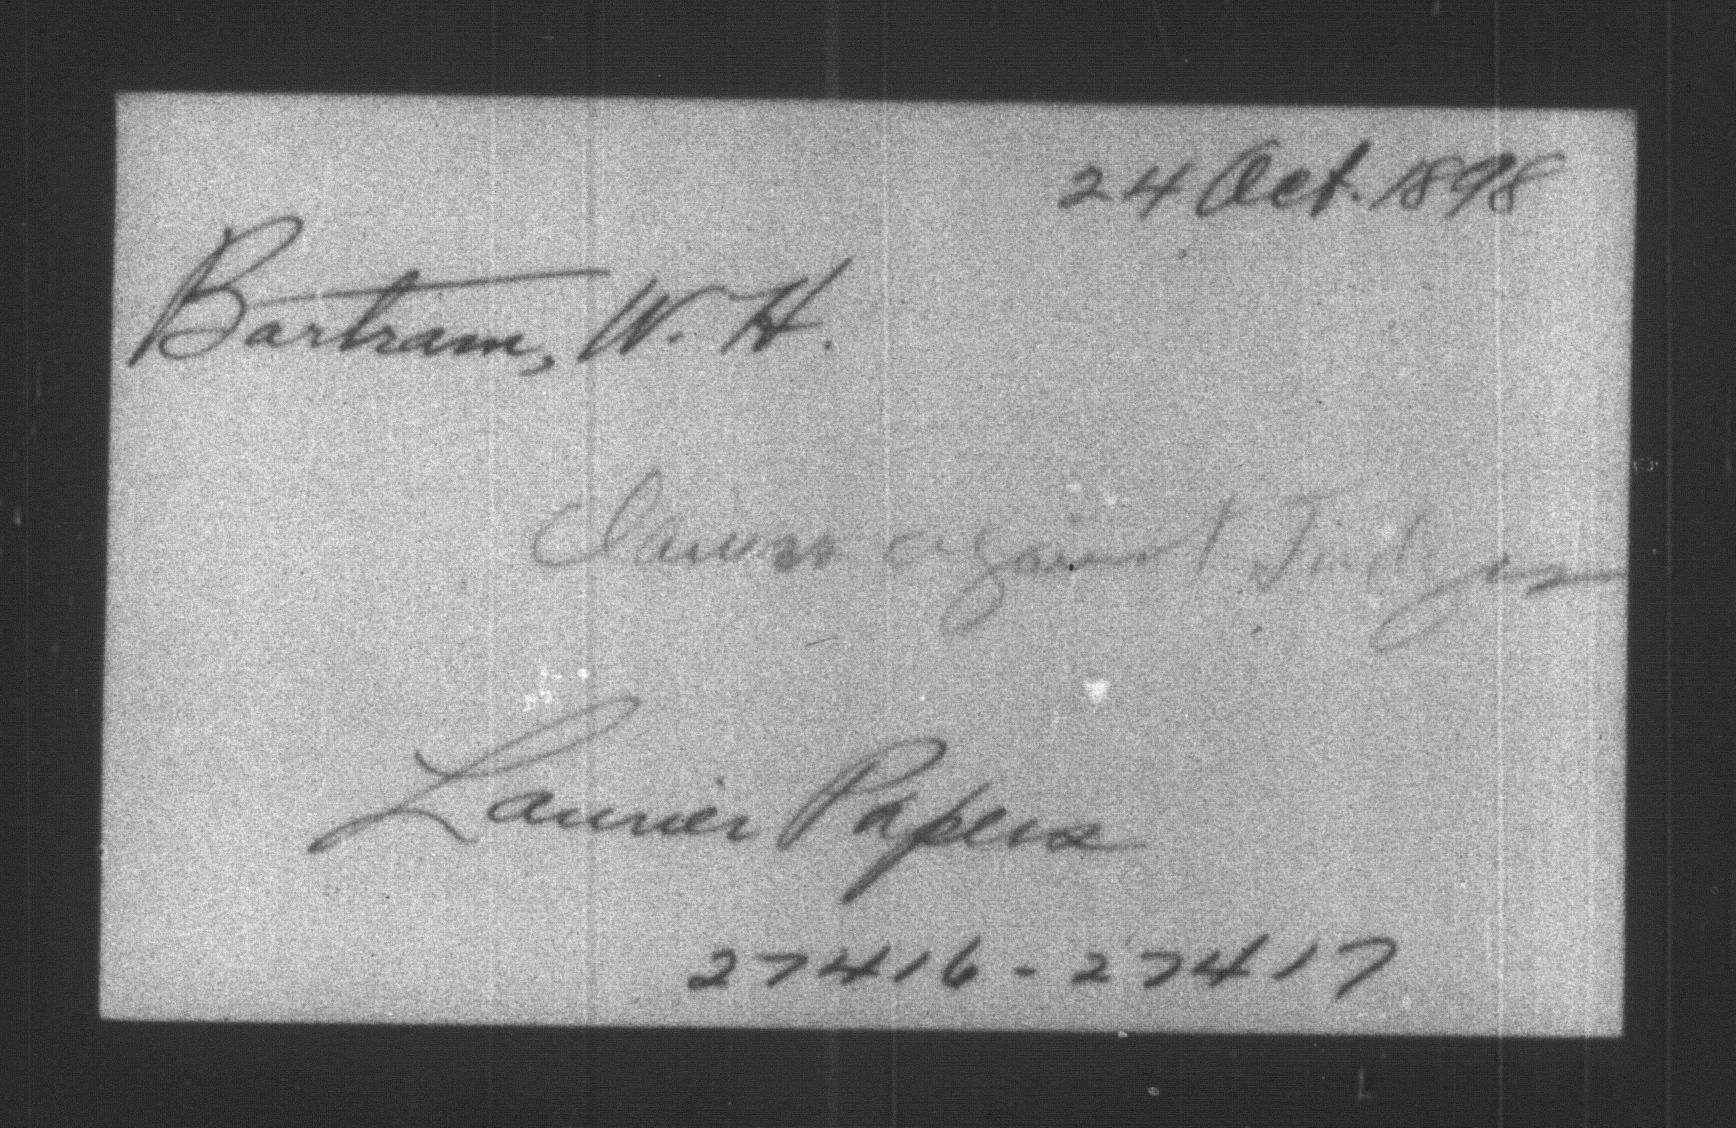 24 Oct. 1898
Bartram, W. H.
Claims against Judges
Laurier Papers
27416 - 27417